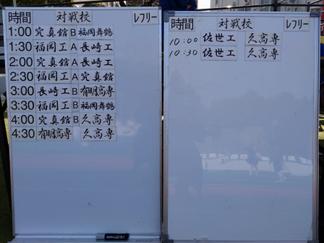 時間 対戦校 レフリー
1:00 穴真館B 福岡舞鶴
1:30 福岡工A 長崎工
2:00 穴真館A 長崎工
2:30 穴真館A 福岡工A
3:00 長崎工B 有明高専
3:30 福岡工B 福岡舞鶴
4:00 穴真館B 久高専
4:30 有明高専 久高専
時間 対戦校 レフリー
10:00 佐世工 久高専
10:30 佐世工 久高専